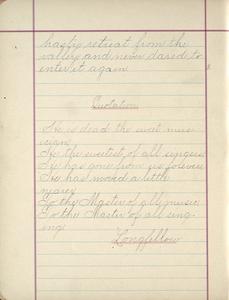 hasty retreat from the
valley and never dared to
enter it again
Quotation
He is dead the sweet musi
cian
He the sweetest of all singers
He has gone from us forever
He has moved a little
nearer
To the Master of all music
To the Master of all sing-
ing
Longfellow